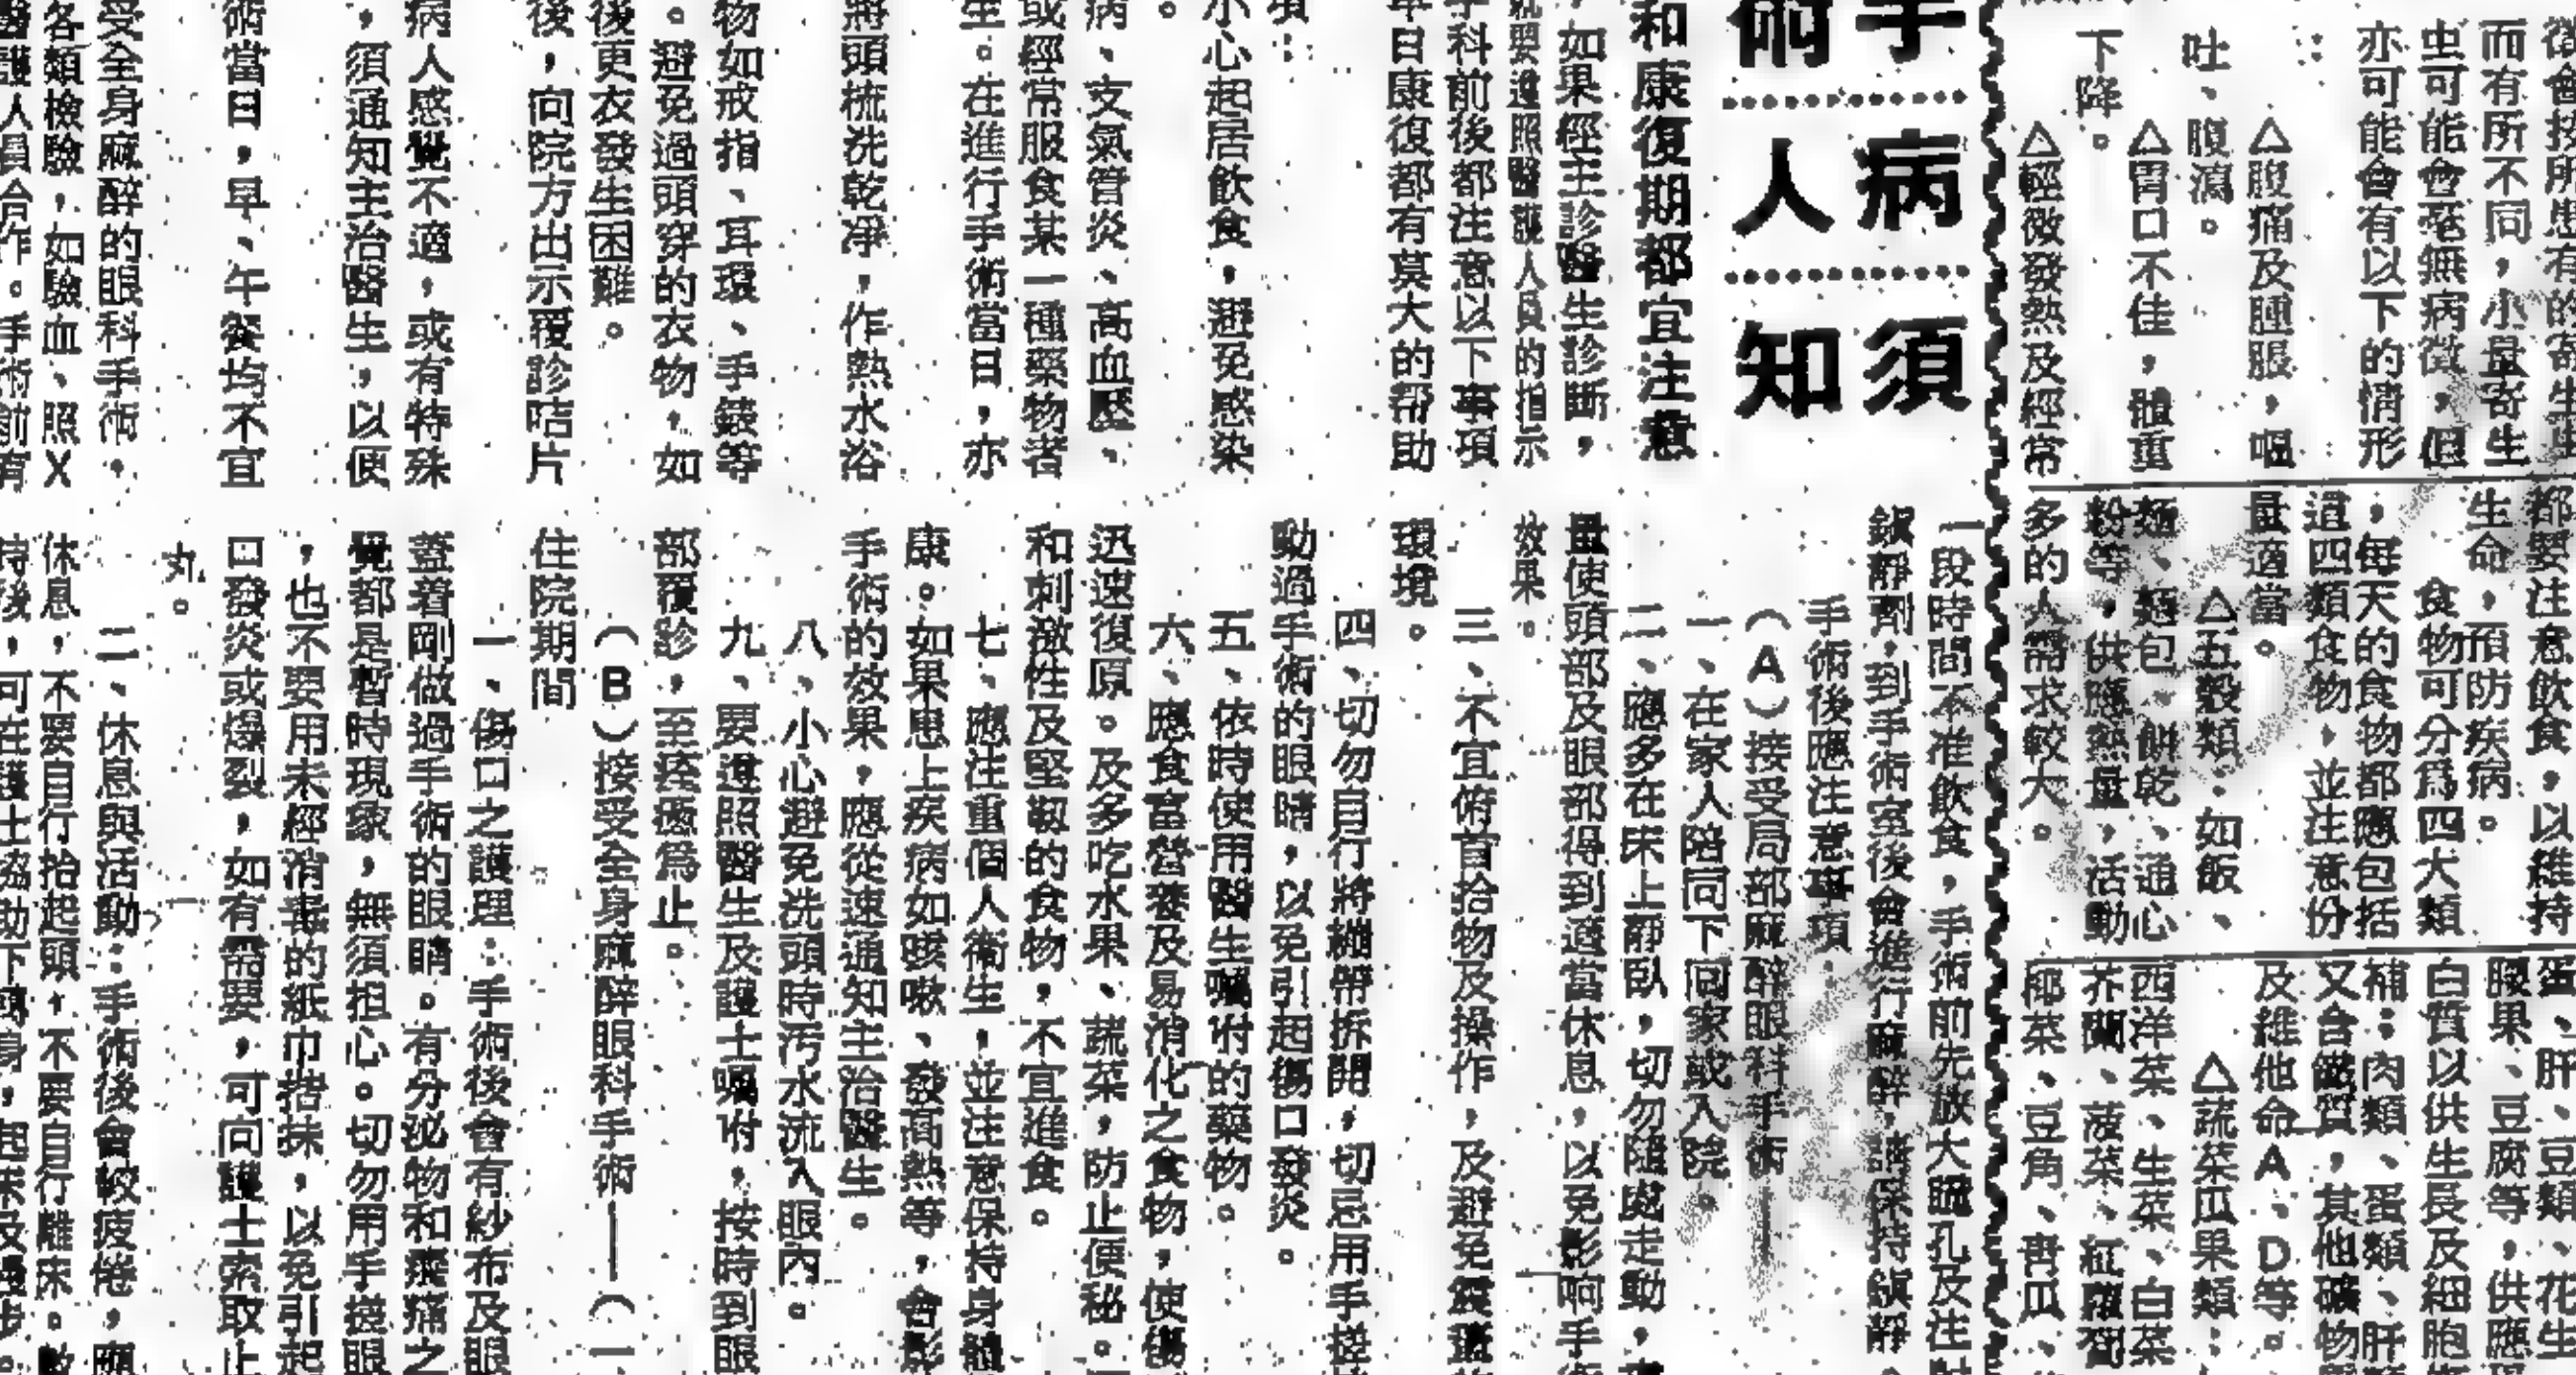 徵會按所患有的寄生
而有所不同，小量寄生
虫可能會毫無病徵，但
亦可能會有以下的情形
：
△腹痛及腫脹，嘔
吐、腹瀉。
△胃口不佳，體重
下降。
△輕微發熱及經常
都要注意飲食，以維持
生命，預防疾病。
食物可分爲四大類
，每天的食物都應包括
這四類食物，並注意份
量適當。
△五穀類：如飯、
麵、麵包、餅乾、通心
粉等，供應熱量，活動
多的人需求較大。
蛋、肝、豆類、花生
腰果、豆腐等，供應
白質以供生長及細胞
補；肉類、蛋類、肝
又含鐵質，其他礦物
及維他命A、D等。
△蔬菜瓜果類：
西洋菜、生菜、白菜
芥蘭、菠菜、紅蘿蔔
椰菜、豆角、靑瓜、
手 病 須
術 人 知
和康復期都宜注意
，如果經主診醫生診斷，
就要遵照醫護人員的指示
手科前後都注意以下事項
早日康復都有莫大的帮助
。
項：
小心起居飲食，避免感染
。
病、支氣管炎、高血壓、
或經常服食某一種藥物者
生。在進行手術當日，亦
將頭梳洗乾净，作熱水浴
物如戒指、耳環、手鈪等
。避免過頭穿的衣物，如
後更衣發生困難。
後，向院方出示覆診咭片
病人感覺不適，或有特殊
，須通知主治醫生，以便
術當日，早、午餐均不宜
受全身麻醉的眼科手術，
各類檢驗，如驗血、照X
醫護人員合作。手術前有
一段時間不准飲食，手術前先放大瞳孔及注
鎮靜劑，到手術室後會進行麻醉，請保持鎮靜。
手術後應注意事項：
（A）接受局部麻醉眼科手術——
一、在家人陪同下回家或入院。
二、應多在床上靜臥，切勿隨處走動，
量使頭部及眼部得到適當休息，以免影响手
效果。
三、不宜俯首拾物及操作，及避免
環境。
四、切勿自行將繃帶拆開，切忌用手搓
動過手術的眼睛，以免引起傷口發炎。
五、依時使用醫生囑咐的藥物。
六、應食富營養及易消化之食物，使傷
迅速復原。及多吃水果、蔬菜，防止便秘。
和刺激性及堅靱的食物，不宜進食。
七、應注重個人衞生，並注意保持身體
康。如果患上疾病如咳嗽、發高熱等，會影
手術的效果，應從速通知主治醫生。
八、小心避免洗頭時汚水流入眼內。
九、要遵照醫生及護士囑咐，按時到眼
部覆診，至痊癒爲止。
（B）接受全身麻醉眼科手術——（一
住院期間
一、傷口之護理：手術後會有紗布及眼
蓋着剛做過手術的眼睛。有分泌物和痠痛之
覺都是暫時現象，無須担心。切勿用手搓眼
，也不要用未經消毒的紙巾揩抹，以免引起
口發炎或爆裂，如有需要，可向護士索取止
丸。
二、休息與活動：手術後會較疲倦，應
休息，不要自行抬起頭，不要自行離床。數
時後，可在護士協助下轉身，起床及